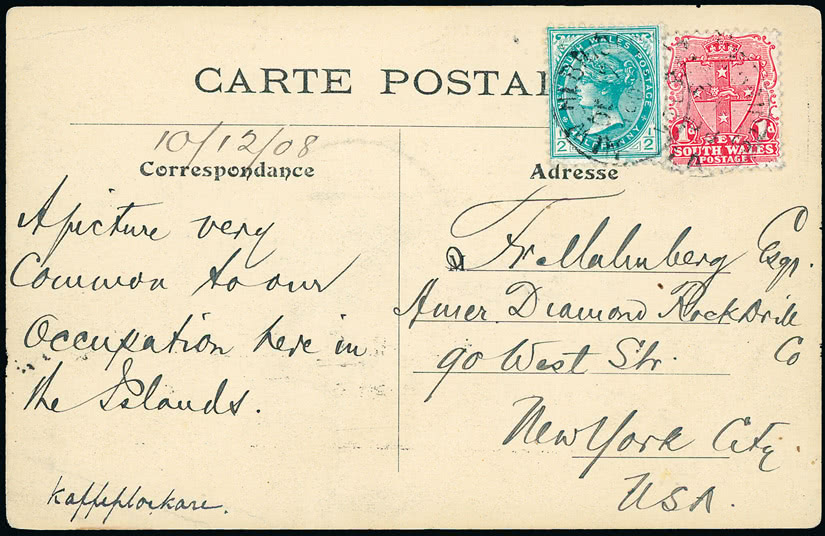 CARTE POSTAL
10/12/08
Correspondance
Adresse
A picture very
Common to our
Occupation here in
the Islands.
Kaffeplockare.
Fr. Malmberg Esqr.
Amer. Diamond Rock Drill
Co
90 West Str.
New York City.
USA.
SOUTH WALES POSTAGE
1/2
1/2
NEW
1d
1d
SOUTH WALES
POSTAGE